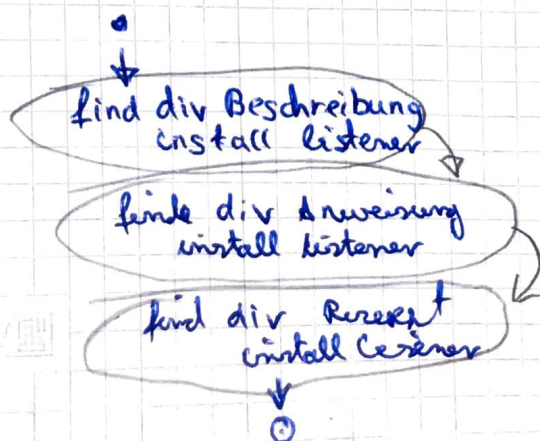 find div Beschreibung
install listener
finde div Anweisung
install Listener
find div Rezept
install Listener